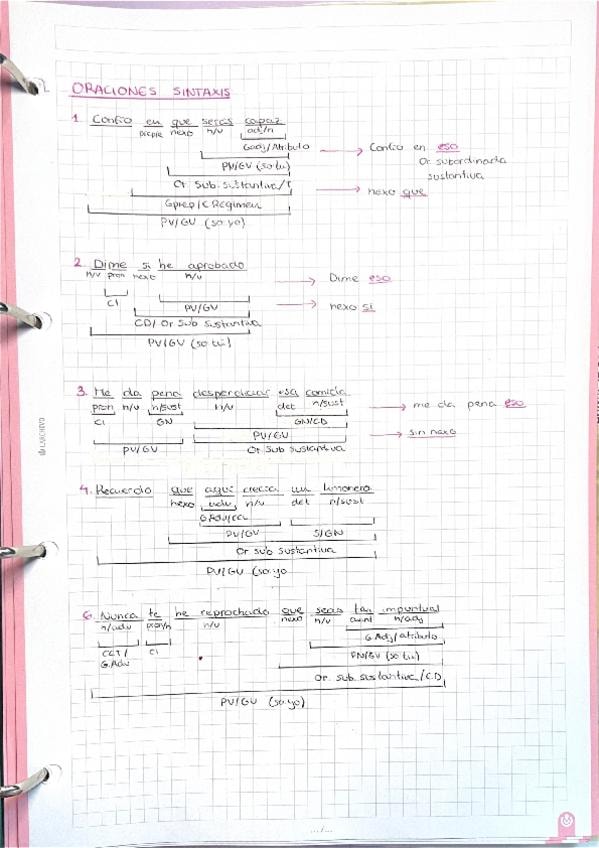 ORACIONES SINTAXIS
1. Confío en que serás capaz
prepre nexo n/v adj/n
Gadj/Atributo → Confío en eso
Or subordinada
sustantiva
PV/GV (so tú)
Or. Sub. sustantiva/T → nexo que
Gprep/C Régimen
PV/GV (so yo)
2. Dime si he aprobado
n/v pron nexo n/v → Dime eso
CI PV/GV → nexo si
CD/ Or Sub Sustantiva
PV/GV (so tú)
3. Me da pena desperdiciar esa comida
pron n/v n/sust n/v det n/sust → me da pena eso
CI GN GN/CD
PV/GV → sin nexo
PV/GV Or Sub Sustantiva
4. Recuerdo que aquí crecía un limonero
nexo adv n/v det n/sust
G.Adv/CCL
PV/GV S/GN
Or sub sustantiva
PV/GV (so yo
6. Nunca te he reprochado que seas tan impuntual
n/adv pron/n n/v nexo n/v cuant n/adj
CCT/ CI G.Adj/atributo
G.Adv
PN/GV (so tú)
Or. sub. sustantiva/CD
PV/GV (so yo)
.../...